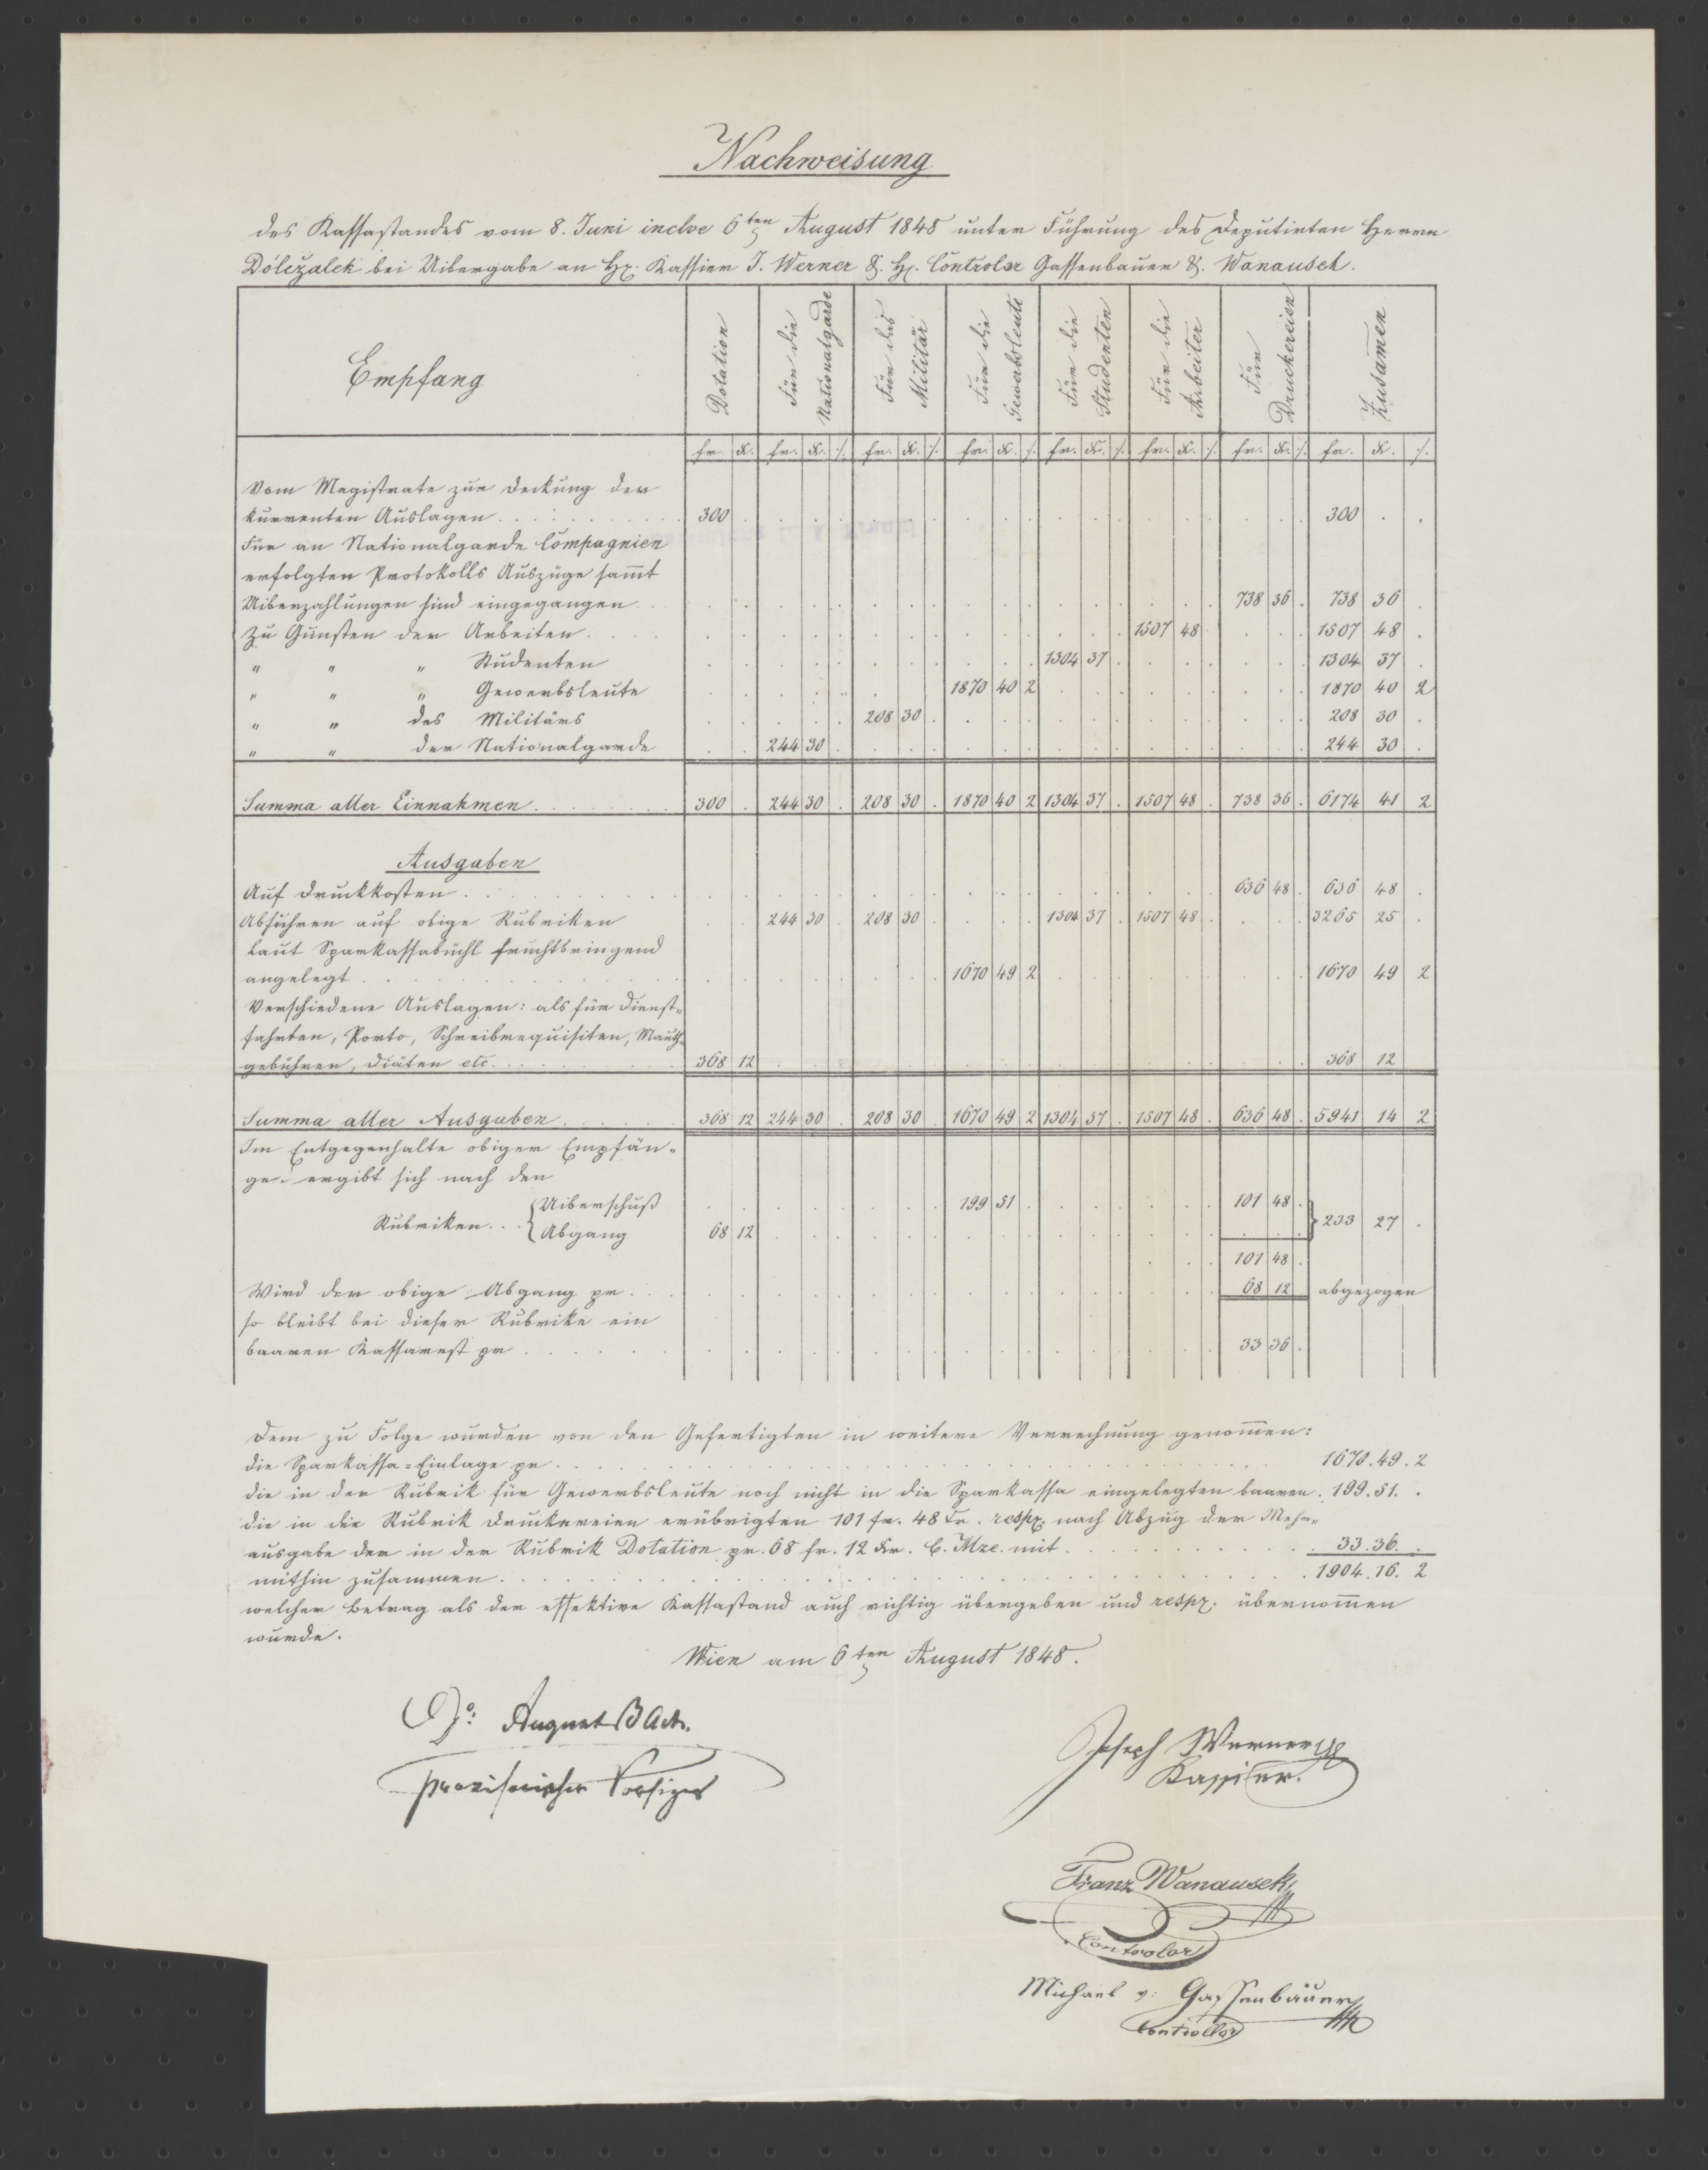 Nachweisung
des Kassastandes vom 8. Juni inclve 6ten August 1848 unter Führung des Deputirten Herrn
Dóležalek bei Uibergabe an H. Kassier J. Werner & H. Controlor Gassenbauer & Wanausek.
Empfang | Dotation | Für die Nationalgarde | Für das Militär | Für die Gewerbsleute | Für die Studenten | Für die Arbeiter | Für Druckereien | Zusam̄en
fr. | Kr. | fr. | Kr. | /. | fr. | Kr. | /. | fr. | Kr. | /. | fr. | Kr. | /. | fr. | Kr. | /. | fr. | Kr. | /. | fr. | Kr. | /.
Vom Magistrate zur Deckung der
kurrenten Auslagen . . . 300 . 300 . .
Für an Nationalgarde Compagnien
erfolgten Protokolls Auszüge sam̄t
Uiberzahlungen sind eingegangen . . 738 36 . 738 36 .
Zu Gunsten der Arbeiter . . . 1507 48 1507 48 .
" " " Studenten 1304 37 . 1304 37 .
" " " Gewerbsleute 1870 40 2 1870 40 2
" " des Militärs 208 30 . 208 30 .
" " der Nationalgarde 244 30 . 244 30 .
Summa aller Einnahmen . . . 300 . 244 30 . 208 30 . 1870 40 2 1304 37 . 1507 48 . 738 36 . 6174 41 2
Ausgaben
Auf Druckkosten . . . 636 48 . 636 48 .
Abfuhren auf obige Rubriken 244 30 . 208 30 . 1304 37 . 1507 48 . 3265 25 .
Laut Sparkassabüchl fruchtbringend
angelegt . . . 1670 49 2 1670 49 2
Verschiedene Auslagen: als für Dienst-
fahrten, Porto, Schreibrequisiten, Mauth-
gebühren, Diäten etc. . . . 368 12 368 12
Summa aller Ausgaben . . . 368 12 244 30 . 208 30 . 1670 49 2 1304 37 . 1507 48 . 636 48 . 5941 14 2
Im Entgegenhalte obiger Empfän-
ge ergibt sich nach den
Rubriken . . { Uiberschuß 199 51 . 101 48 . } 233 27 .
Abgang 68 12
101 48 .
Wird der obige Abgang pr. . . 68 12 abgezogen
so bleibt bei dieser Rubrike ein
baaren Kassarest pr . . . 33 36 .
Dem zu Folge wurden von den Gefertigten in weitere Verrechnung genom̄en:
die Sparkassa-Einlage pr. . . . 1670.49.2
die in der Rubrik für Gewerbsleute noch nicht in die Sparkassa eingelegten baaren . 199.51. .
die in die Rubrik Druckereien erübrigten 101 fr. 48 Kr. resp. nach Abzug der Mehr-
ausgabe der in der Rubrik Dotation pr. 68 fr. 12 Kr. C. Mze. mit . . . 33.36. .
mithin zusammen . . . 1904.16.2
welcher Betrag als der effektive Kassastand auch richtig übergeben und resp. übernom̄en
wurde.
Wien am 6ten August 1848.
August Bach.
provisorischer Vorsizer
Joseph Werner
Kassier.
Franz Wanausek
Controlor
Michael v: Gassenbäuer
Controllor